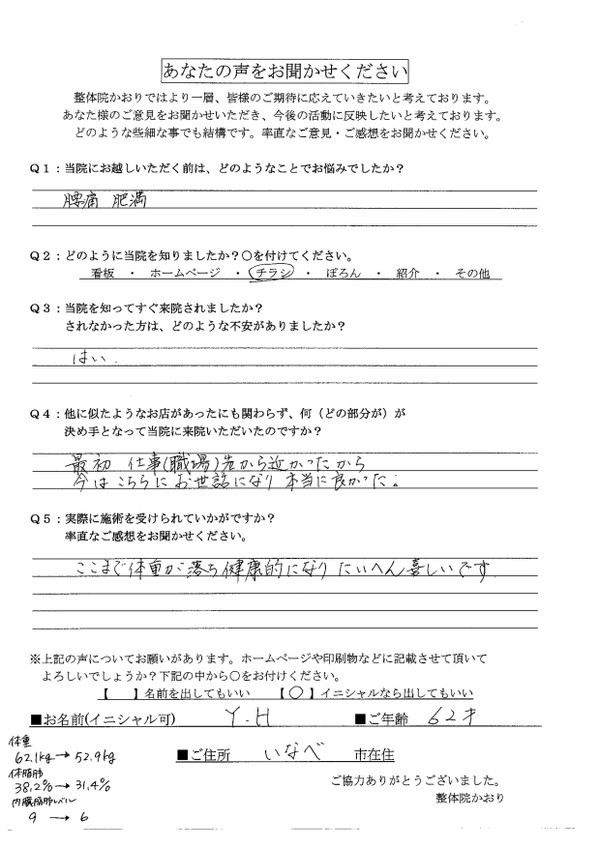 あなたの声をお聞かせください
整体院かおりではより一層、皆様のご期待に応えていきたいと考えております。
あなた様のご意見をお聞かせいただき、今後の活動に反映したいと考えております。
どのような些細な事でも結構です。率直なご意見・ご感想をお聞かせください。
Q1：当院にお越しいただく前は、どのようなことでお悩みでしたか？
腰痛 肥満
Q2：どのように当院を知りましたか？〇を付けてください。
看板 ・ ホームページ ・ チラシ ・ ぽろん ・ 紹介 ・ その他
Q3：当院を知ってすぐ来院されましたか？
されなかった方は、どのような不安がありましたか？
はい.
Q4：他に似たようなお店があったにも関わらず、何（どの部分が）が
決め手となって当院に来院いただいたのですか？
最初 仕事(職場)先から近かったから
今はこちらにお世話になり本当に良かった。
Q5：実際に施術を受けられていかがですか？
率直なご感想をお聞かせください。
ここまで体重が落ち健康的になりたいへん喜しいです
※上記の声についてお願いがあります。ホームページや印刷物などに記載させて頂いて
よろしいでしょうか？下記の中から〇をお付けください。
【　】名前を出してもいい 【〇】イニシャルなら出してもいい
■お名前(イニシャル可) Y.H ■ご年齢 62才
■ご住所 いなべ 市在住
体重
62.1kg→52.9kg
体脂肪
38.2%→31.4%
内臓脂肪レベル
9→6
ご協力ありがとうございました。
整体院かおり